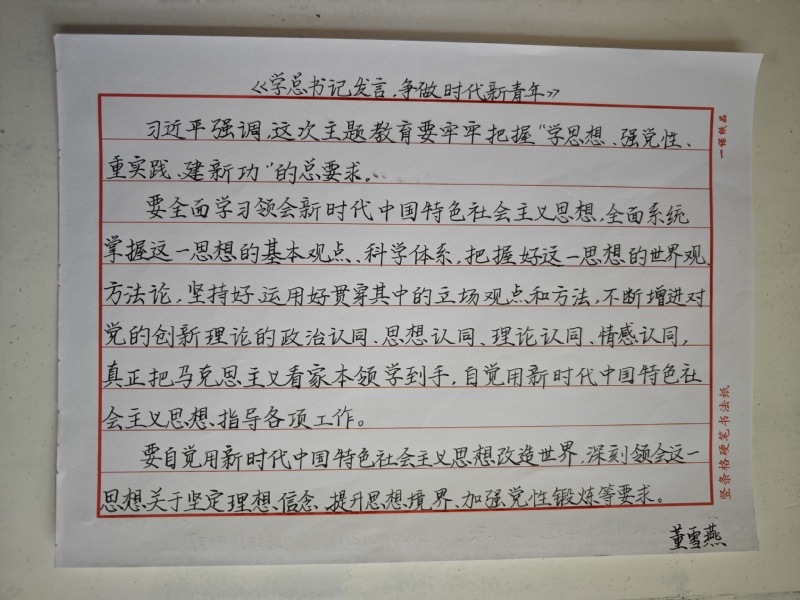 《学总书记发言，争做时代新青年》
习近平强调，这次主题教育要牢牢把握“学思想、强党性、
重实践、建新功”的总要求。
要全面学习领会新时代中国特色社会主义思想，全面系统
掌握这一思想的基本观点、科学体系，把握好这一思想的世界观、
方法论，坚持好、运用好贯穿其中的立场观点和方法，不断增进对
党的创新理论的政治认同、思想认同、理论认同、情感认同，
真正把马克思主义看家本领学到手，自觉用新时代中国特色社
会主义思想、指导各项工作。
要自觉用新时代中国特色社会主义思想改造世界，深刻领会这一
思想关于坚定理想、信念、提升思想境界、加强党性锻炼等要求。
董雪燕
一诺纸品
竖条格硬笔书法纸